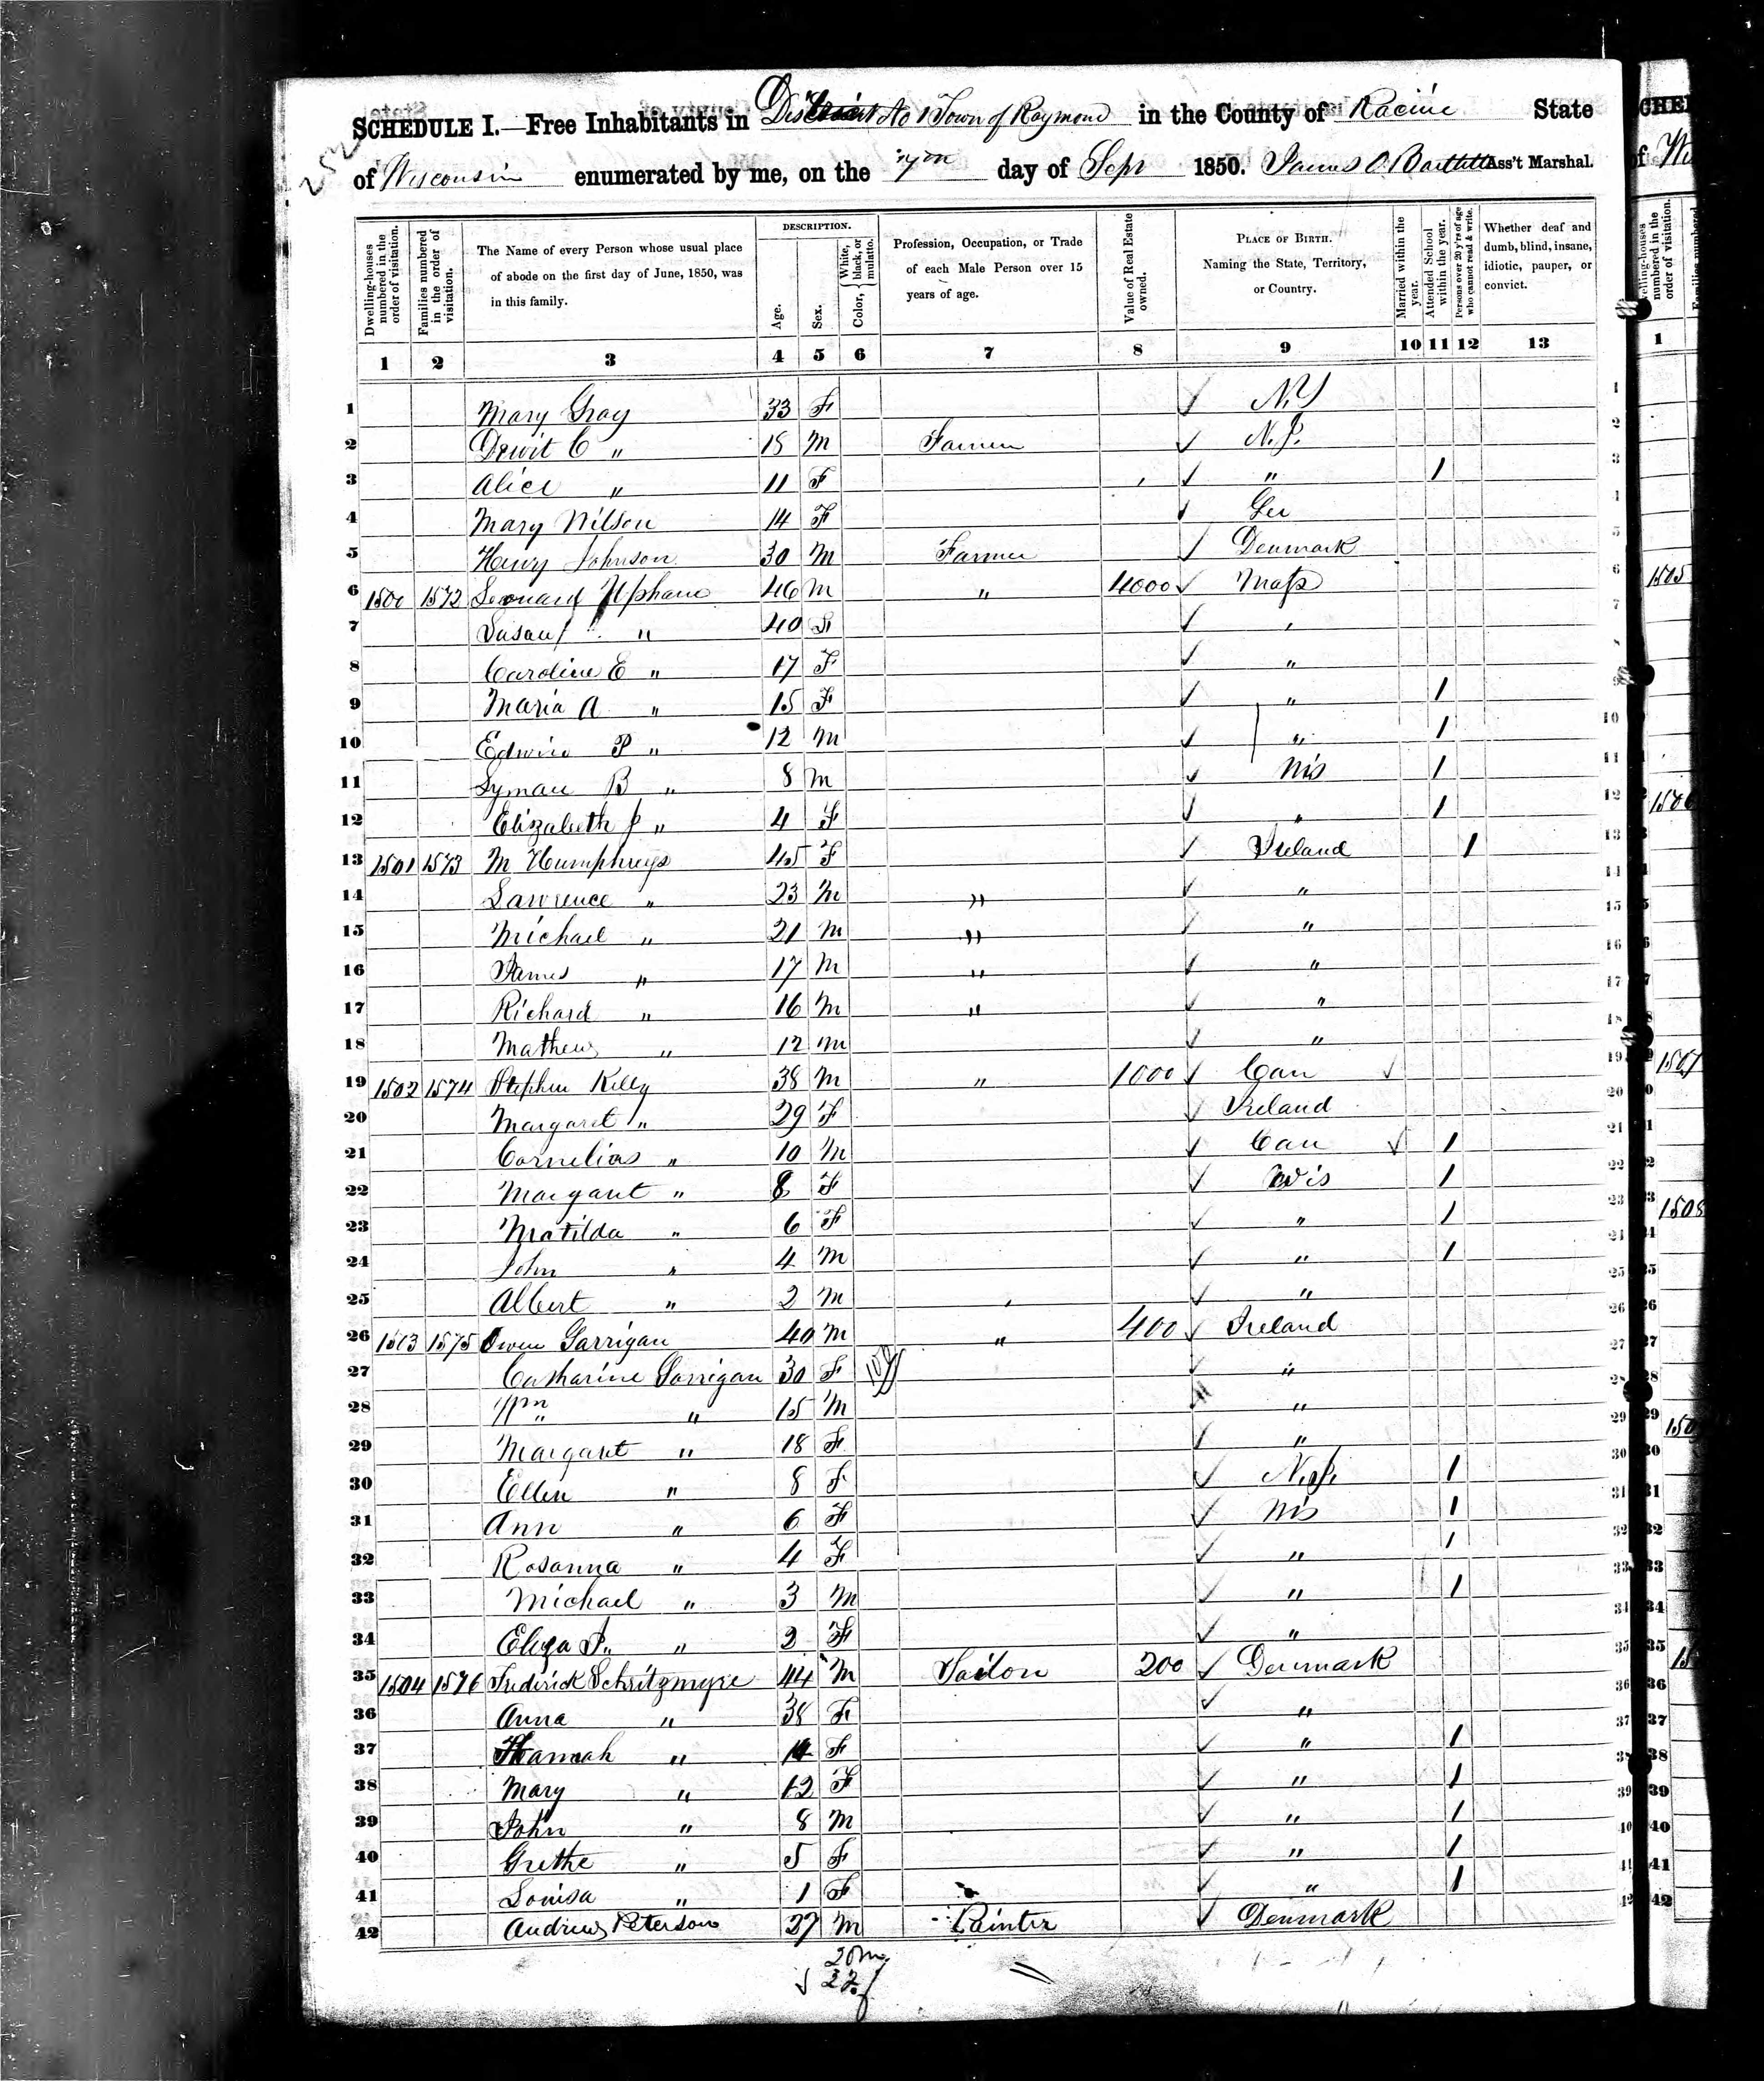 252
SCHEDULE I.—Free Inhabitants in District No 1 Town of Raymond in the County of Racine State
of Wisconsin enumerated by me, on the 7th day of Sept 1850. James O. Bartlett Ass't Marshal.
Dwelling-houses numbered in the order of visitation.
Families numbered in the order of visitation.
The Name of every Person whose usual place of abode on the first day of June, 1850, was in this family.
DESCRIPTION.
Age.
Sex.
Color, { White, black, or mulatto.
Profession, Occupation, or Trade of each Male Person over 15 years of age.
Value of Real Estate owned.
PLACE OF BIRTH. Naming the State, Territory, or Country.
Married within the year.
Attended School within the year.
Persons over 20 y'rs of age who cannot read & write.
Whether deaf and dumb, blind, insane, idiotic, pauper, or convict.
1 2 3 4 5 6 7 8 9 10 11 12 13
1 Mary Gray 33 F ✓ N.Y 1
2 Dewit C " 18 M Farmer ✓ N.J. 2
3 Alice " 11 F ✓ " 1 3
4 Mary Nilson 14 F ✓ Ger
5 Henry Johnson 30 M Farmer ✓ Denmark 5
6 1500 1572 Leonard Upham 46 M " 4000 ✓ Mass 6
7 Susan " 40 F ✓ " 7
8 Caroline E " 17 F ✓ "
9 Maria A " 15 F ✓ " 1
10 Edwin P " 12 M ✓ " 1 10
11 Lyman B " 8 M ✓ Wis 1 11
12 Elizabeth J " 4 F ✓ " 1 12
13 1501 1573 M Humphreys 45 F ✓ Ireland 1 13
14 Lawrence " 23 M " ✓ " 14
15 Michael " 21 M " ✓ " 15
16 James " 17 M " ✓ " 16
17 Richard " 16 M " ✓ " 17
18 Mathew " 12 M ✓ " 18
19 1502 1574 Stephen Kelly 38 M " 1000 ✓ Can ✓ 19
20 Margaret " 29 F ✓ Ireland 20
21 Cornelias " 10 M ✓ Can ✓ 1 21
22 Margaret " 8 F ✓ Wis 1 22
23 Matilda " 6 F ✓ " 1 23
24 John " 4 M ✓ " 1 24
25 Albert " 2 M ✓ " 25
26 1503 1575 Owen Garrigan 40 M " 400 ✓ Ireland 26
27 Catharine Garrigan 30 F ✓ " 27
28 Wm " 15 M " 28
29 Margaret " 18 F ✓ " 29
30 Ellen " 8 F ✓ N.J. 1 30
31 Ann " 6 F ✓ Wis 1 31
32 Rosanna " 4 F ✓ " 1 32
33 Michael " 3 M ✓ " 1 33
34 Eliza J. " 2 F ✓ " 34
35 1504 1576 Frederick Schritzmyre 44 M Sailor 200 ✓ Denmark 35
36 Anna " 38 F ✓ " 36
37 Hannah " 14 F ✓ " 1 37
38 Mary " 12 F ✓ " 1 38
39 John " 8 M ✓ " 1 39
40 Grethe " 5 F ✓ " 1 40
41 Louisa " 1 F ✓ " 1 41
42 Andrew Peterson 27 M Painter ✓ Denmark 42
20 m
✓ 22 f
CHE
of Wi
Dwelling-houses numbered in the order of visitation.
1
1505
1506
1507
1508